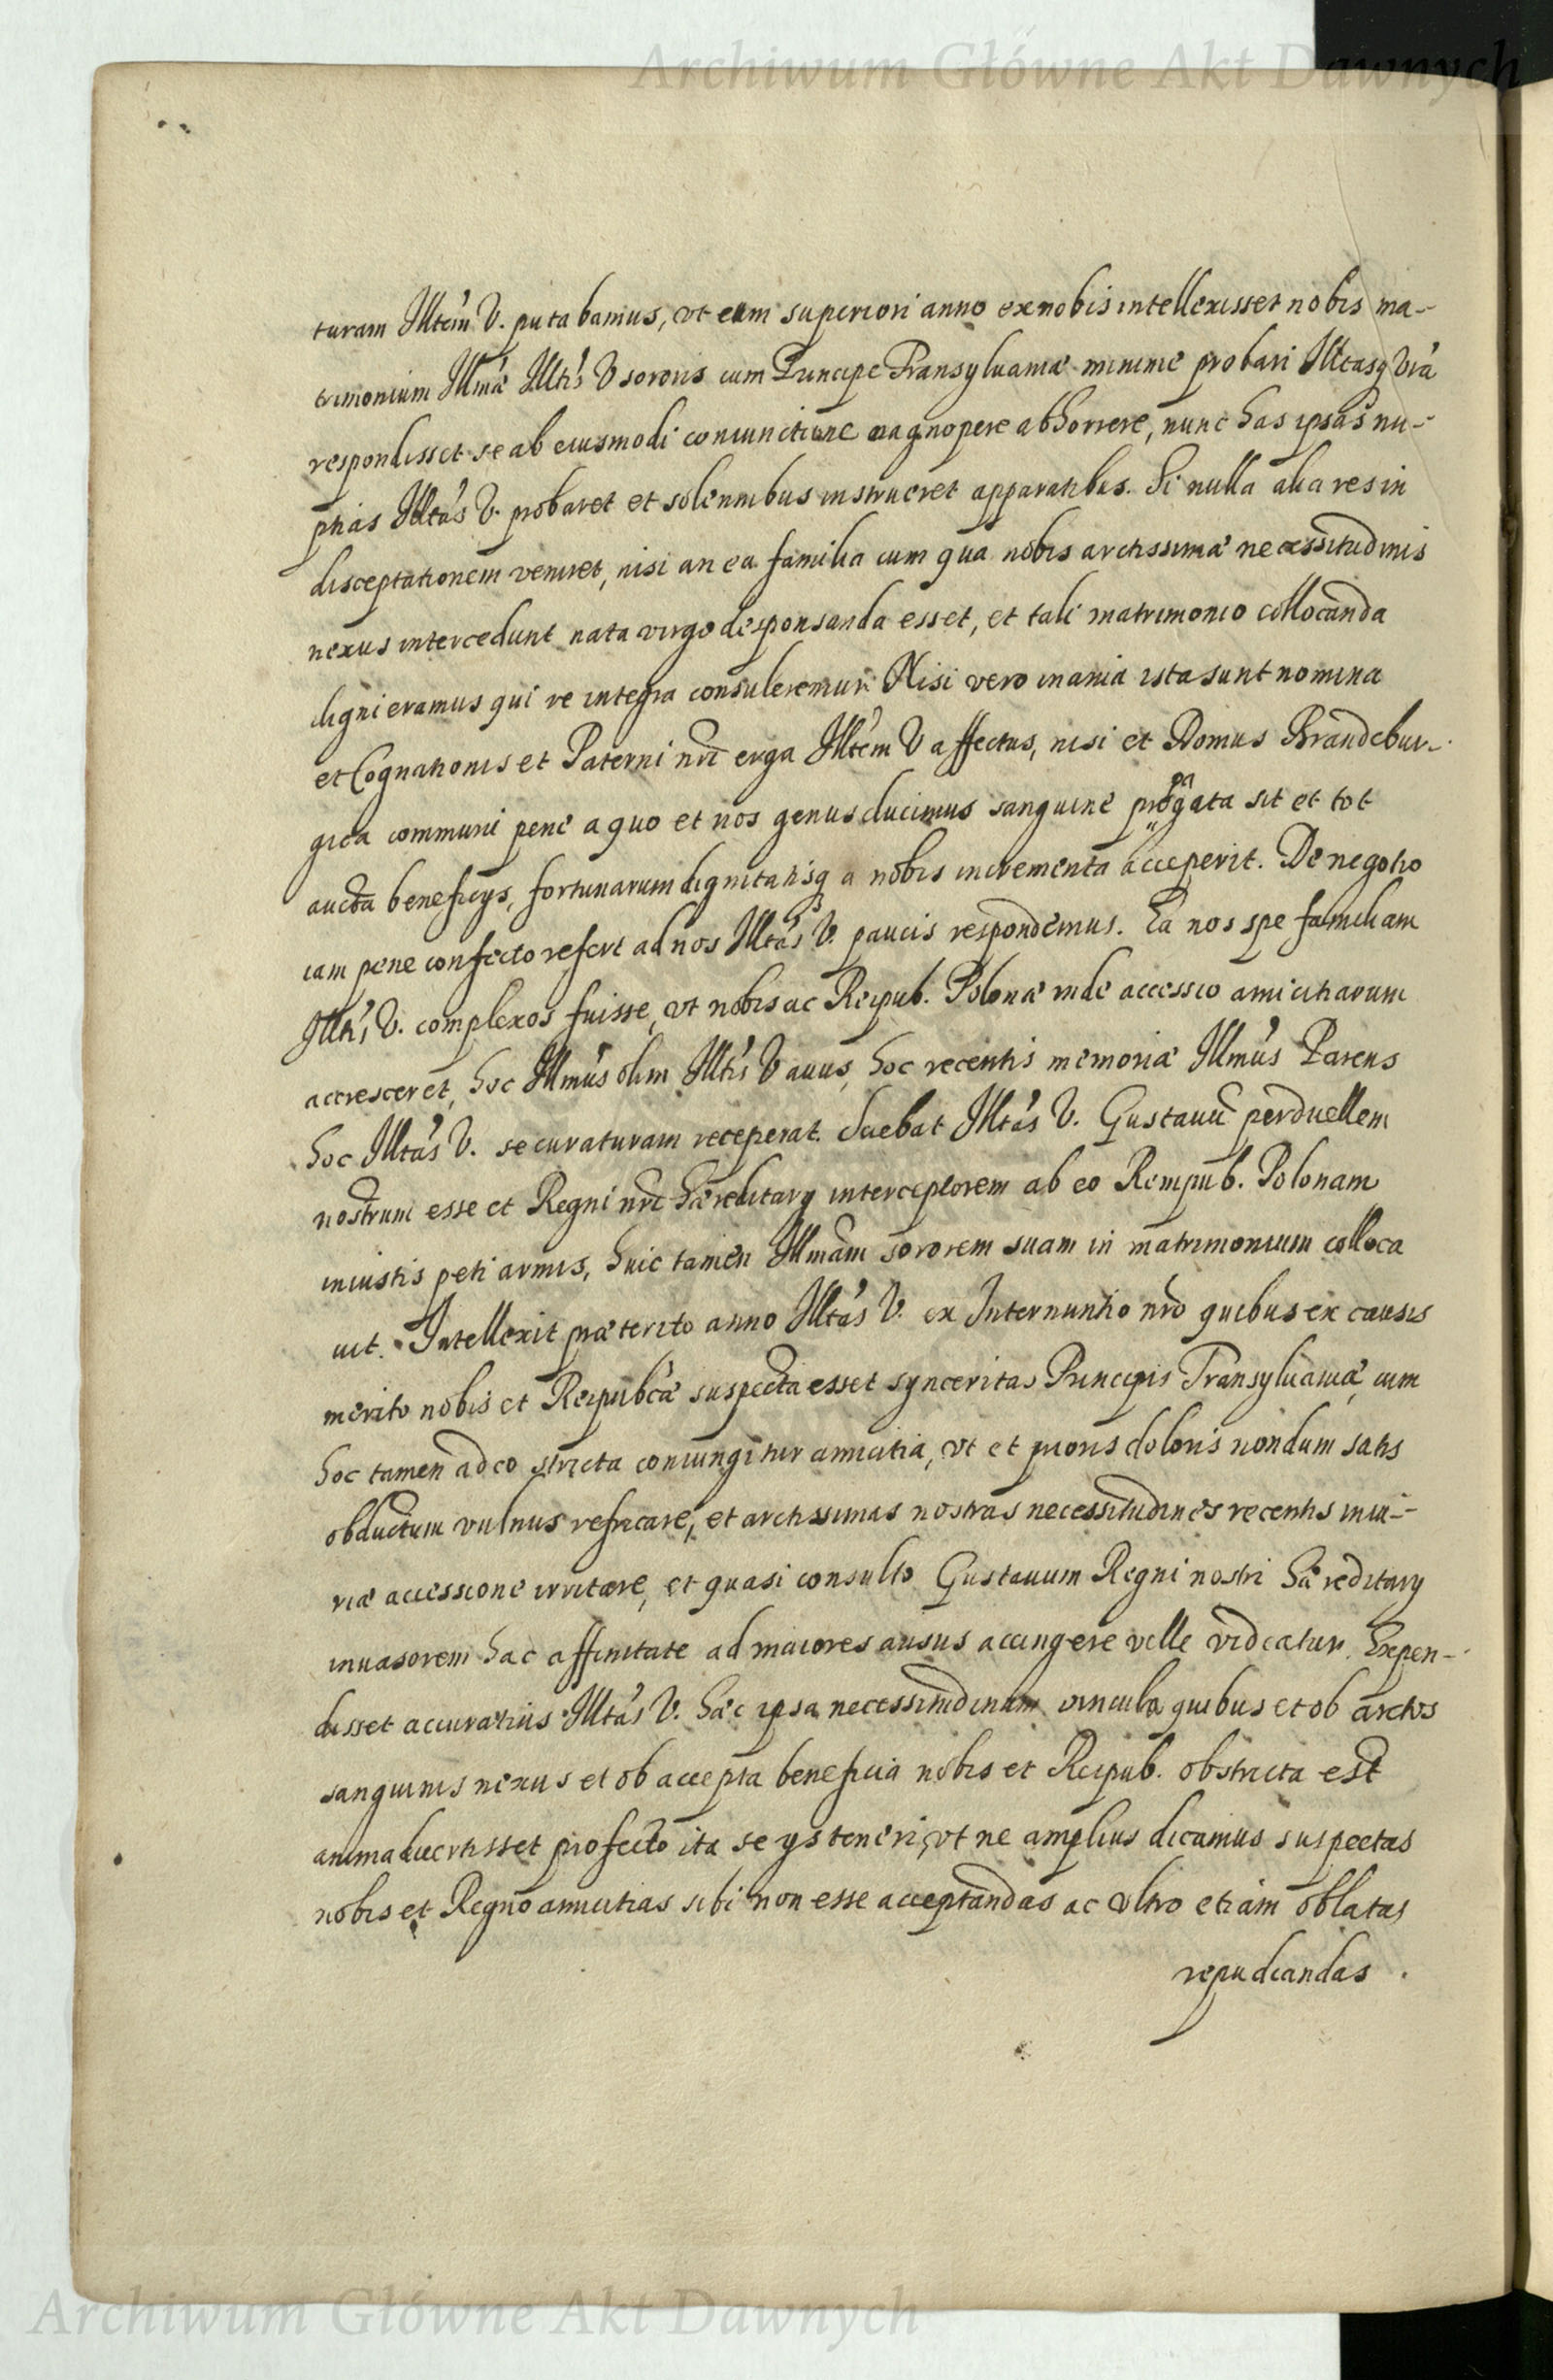 Archiwum Główne Akt Dawnych
turam Illtem V. putabamus, vt cum superiori anno ex nobis intellexisset nobis ma-
trimonium Illmæ Illtis V sororis cum Principe Transyluaniæ minime probari Illtasq Vra
respondisset se ab eiusmodi coniunctione magnopere abhorrere, nunc has ipsas nu-
ptias Illtas V. probaret et solennibus instrueret apparatibus. Si nulla alia res in
disceptationem veniret, nisi an ea familia cum qua nobis arctissimæ necessitudinis
nexus intercedunt nata virgo desponsanda esset, et tali matrimonio collocanda
digni eramus qui re integra consuleremur. Nisi vero inania ista sunt nomina
et Cognationis et Paterni nri erga Illtem V affectus, nisi et Domus Brandebur-
gica communi pene a quo et nos genus ducimus sanguine propagata sit et tot
aucta beneficys, fortunarum dignitatisq a nobis incrementa acceperit. De negotio
iam pene confecto refert ad nos Illtas V. paucis respondemus. Ea nos spe familiam
Illtis V. complexos fuisse, vt nobis ac Reipub. Polonæ inde accessio amicitiarum
accresceret, hoc Illmus olim Illtis V auus, hoc recentis memoriæ Illmus Parens
hoc Illtas V. se curaturam receperat. Sciebat Illtas V. Gustauu perduellem
nostrum esse et Regni nri hæreditary interceptorem ab eo Rempub. Polonam
iniustis peti armis, huic tamen Illmam sororem suam in matrimonium colloca
uit. Intellexit præterito anno Illtas V. ex Internuntio nro quibus ex causis
merito nobis et Reipubcæ suspecta esset synceritas Principis Transyluaniæ, cum
hoc tamen adeo stricta coniungitur amicitia, vt et prioris doloris nondum satis
obductum vulnus refricare, et arctissimas nostras necessitudines recentis iniu-
riæ accessione irritare, et quasi consulto Gustauum Regni nostri hæreditary
inuasorem hac affinitate ad maiores ausus accingere velle videatur. Expen-
disset accuratius Illtas V. hæc ipsa necessitudinum vincula quibus et ob arctos
sanguinis nexus et ob accepta beneficia nobis et Reipub. obstricta est
animaduertisset profecto ita se ys teneri, vt ne amplius dicamus suspectas
nobis et Regno amicitias sibi non esse acceptandas ac vltro etiam oblatas
repudiandas.
Archiwum Główne Akt Dawnych